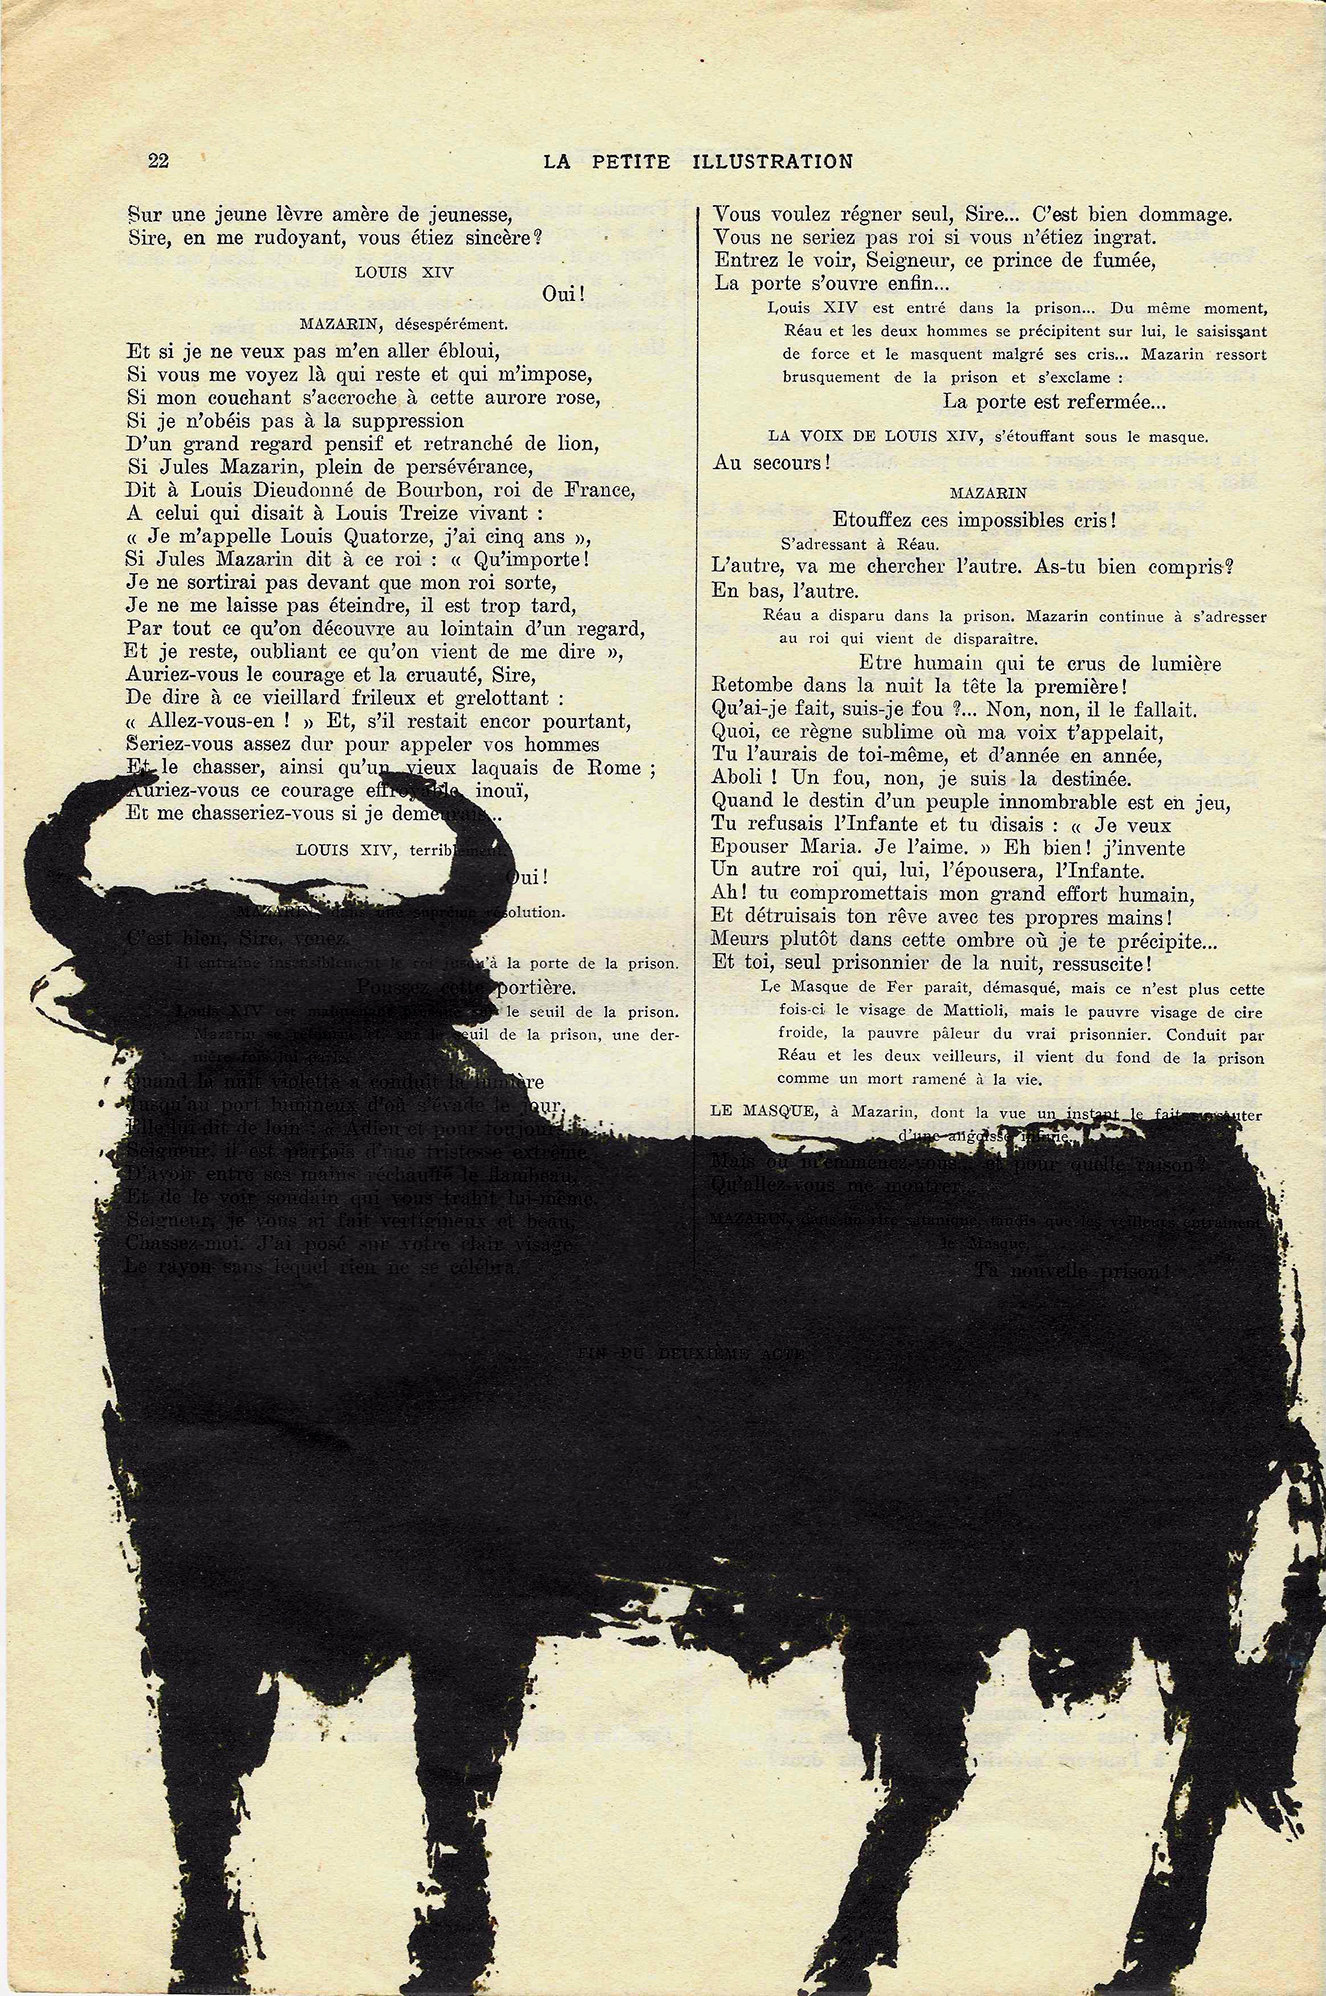 22
LA PETITE ILLUSTRATION
Sur une jeune lèvre amère de jeunesse,
Sire, en me rudoyant, vous étiez sincère?
LOUIS XIV
Oui!
MAZARIN, désespérément.
Et si je ne veux pas m'en aller ébloui,
Si vous me voyez là qui reste et qui m'impose,
Si mon couchant s'accroche à cette aurore rose,
Si je n'obéis pas à la suppression
D'un grand regard pensif et retranché de lion,
Si Jules Mazarin, plein de persévérance,
Dit à Louis Dieudonné de Bourbon, roi de France,
A celui qui disait à Louis Treize vivant :
« Je m'appelle Louis Quatorze, j'ai cinq ans »,
Si Jules Mazarin dit à ce roi : « Qu'importe!
Je ne sortirai pas devant que mon roi sorte,
Je ne me laisse pas éteindre, il est trop tard,
Par tout ce qu'on découvre au lointain d'un regard,
Et je reste, oubliant ce qu'on vient de me dire »,
Auriez-vous le courage et la cruauté, Sire,
De dire à ce vieillard frileux et grelottant :
« Allez-vous-en ! » Et, s'il restait encor pourtant,
Seriez-vous assez dur pour appeler vos hommes
Et le chasser, ainsi qu'un vieux laquais de Rome ;
Auriez-vous ce courage effroyable, inouï,
Et me chasseriez-vous si je demeurais...
LOUIS XIV, terriblement.
Oui!
MAZARIN, dans une suprême résolution.
C'est bien, Sire, venez.
Il entraîne insensiblement le roi jusqu'à la porte de la prison.
Poussez cette portière.
Louis XIV est le seuil de la prison.
Mazarin seuil de la prison, une der-
nière fois lui parle.
Quand la nuit violette a conduit la lumière
Jusqu'au port lumineux d'où s'évade le jour,
Elle lui dit de loin : Adieu et pour toujours.
Seigneur, il est parfois d'une tristesse extrême
D'avoir entre ses mains réchauffé le flambeau
Et de le voir soudain qui vous trahit lui-même.
Seigneur, je vous ai fait vertigineux et beau,
Chassez-moi. J'ai posé sur votre clair visage
Le rayon sans lequel rien ne se célébra.
Vous voulez régner seul, Sire... C'est bien dommage.
Vous ne seriez pas roi si vous n'étiez ingrat.
Entrez le voir, Seigneur, ce prince de fumée,
La porte s'ouvre enfin...
Louis XIV est entré dans la prison... Du même moment,
Réau et les deux hommes se précipitent sur lui, le saisissant
de force et le masquent malgré ses cris... Mazarin ressort
brusquement de la prison et s'exclame :
La porte est refermée...
LA VOIX DE LOUIS XIV, s'étouffant sous le masque.
Au secours!
MAZARIN
Etouffez ces impossibles cris!
S'adressant à Réau.
L'autre, va me chercher l'autre. As-tu bien compris?
En bas, l'autre.
Réau a disparu dans la prison. Mazarin continue à s'adresser
au roi qui vient de disparaître.
Etre humain qui te crus de lumière
Retombe dans la nuit la tête la première!
Qu'ai-je fait, suis-je fou ?... Non, non, il le fallait.
Quoi, ce règne sublime où ma voix t'appelait,
Tu l'aurais de toi-même, et d'année en année,
Aboli ! Un fou, non, je suis la destinée.
Quand le destin d'un peuple innombrable est en jeu,
Tu refusais l'Infante et tu disais : « Je veux
Epouser Maria. Je l'aime. » Eh bien! j'invente
Un autre roi qui, lui, l'épousera, l'Infante.
Ah! tu compromettais mon grand effort humain,
Et détruisais ton rêve avec tes propres mains!
Meurs plutôt dans cette ombre où je te précipite...
Et toi, seul prisonnier de la nuit, ressuscite!
Le Masque de Fer paraît, démasqué, mais ce n'est plus cette
fois-ci le visage de Mattioli, mais le pauvre visage de cire
froide, la pauvre pâleur du vrai prisonnier. Conduit par
Réau et les deux veilleurs, il vient du fond de la prison
comme un mort ramené à la vie.
LE MASQUE, à Mazarin, dont la vue un instant le fait sursauter
d'une angoisse infinie.
Mais où m'emmenez-vous... et pour quelle raison?
Qu'allez-vous me montrer...
MAZARIN, tandis que les veilleurs entraînent
le Masque.
Ta nouvelle prison!
FIN DU DEUXIÈME ACTE